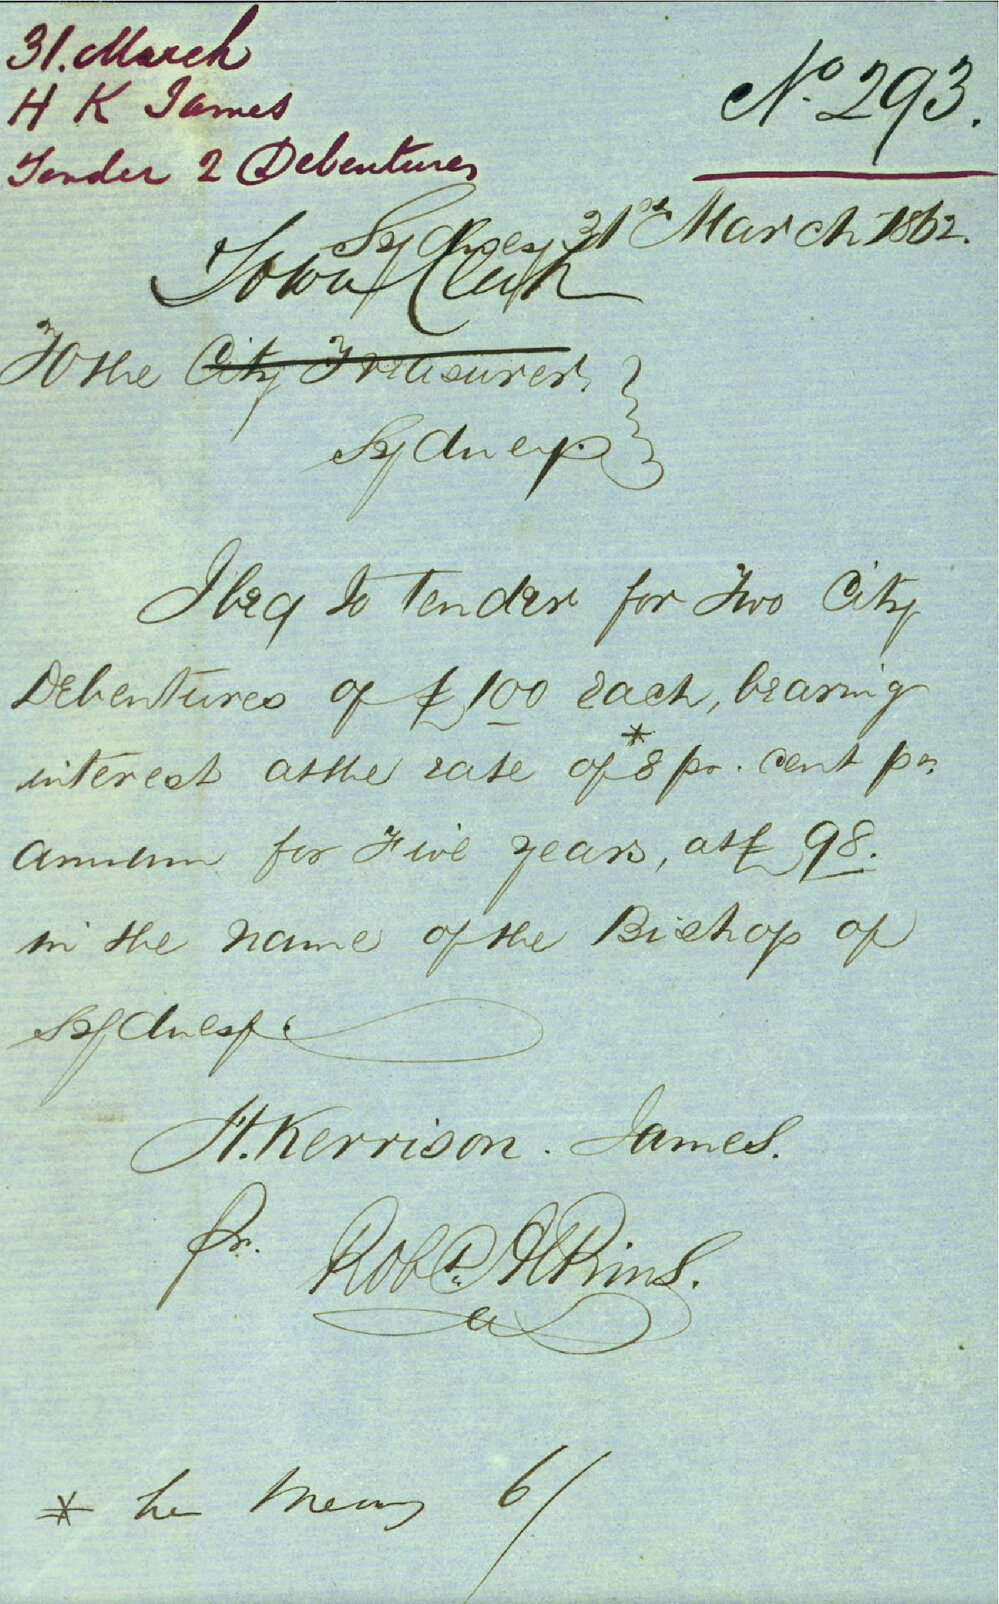 31. March
H K James
Tender 2 Debentures
No. 293.
Sydney 31st March 1862.
Town Clerk
To the City Treasurer,
Sydney.
I beg to tender for Two City
Debentures of £100 each, bearing
interest at the rate of *8 pr. cent pr.
annum for Five years, at £98.
in the name of the Bishop of
Sydney.
H. Kerrison. James.
Pr. Robt. Atkins.
* he means 6/